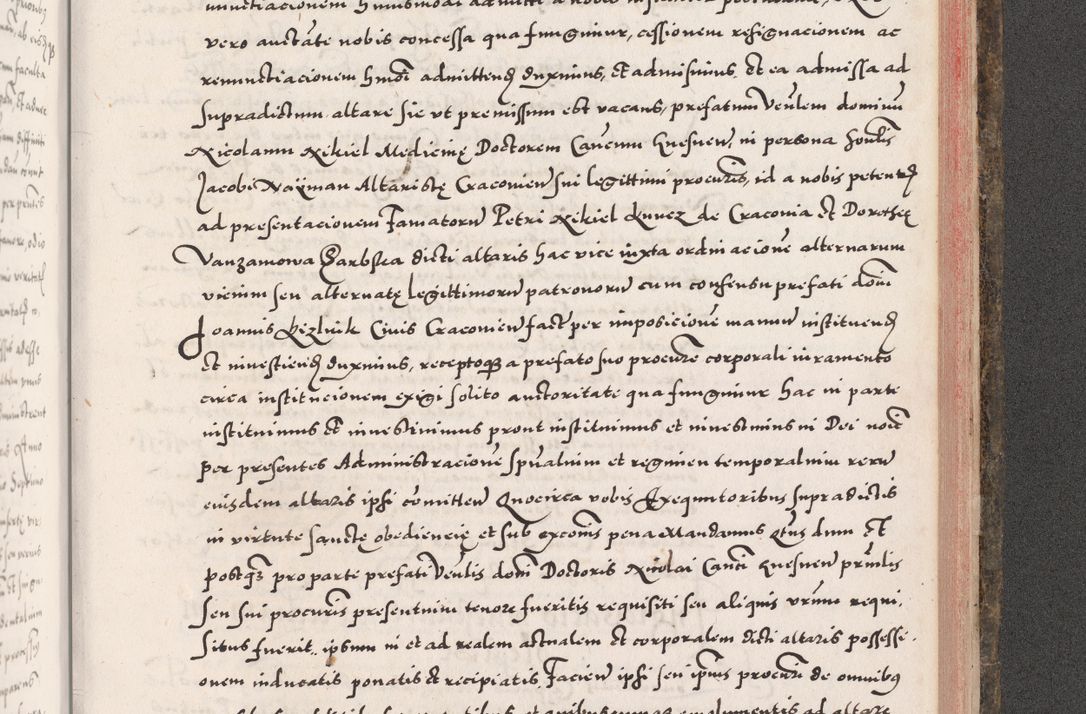 vero auctate nobis concessa qua fungimur, cessionem resignacionem ac
renunctiacionem hmoi admittend duximus, et admisimus et ea admissa ad
supradictum altare sic ut premissum est vacans, prefatum Venlem dominu
Nicolaum Nikiel Medicinę Doctorem Canenum Gnesnen, in persona honlis
Jacobi Nayman Altaristę Cracovien sui legittimi procuris, id a nobis petentis
ad presentacionem Famatoru Petri Nikiel de Cracovia et Dorotheę
dicti altaris hac vice iuxta ordinacione alternarum
vicium seu alternatę legittimoru patronoru cum consensu prefati domi
Joannis Civis Cracovien fact per imposicione manuu instituend
et investiend duximus, receptoque a prefato suo procure corporali iuramento
circa institucionem exigi solito auctoritate qua fungimur hac in parte
instituimus et investivimus prout instituimus et investimus in Dei noie
per presentes Administracione spualium et regimen temporalium reru
eiusdem altaris ipsi comitten Quocirca vobis Exequutoribus supradictis
in virtute sanctę obediencię et sub excomis pena Mandamus Qtus dum et
postqz pro parte prefati Venlis domi Doctoris Nicolai Canci Gnesnen prnlis
seu sui procuris presentium tenore fueritis requisiti seu aliquis vrum requi,
situs fuerit, ipsum in et ad realem actualem et corporalem dicti altaris possessi-
onem inducatis ponatis et recipiatis, Facien ipsi seu ipius procuri de omnibus